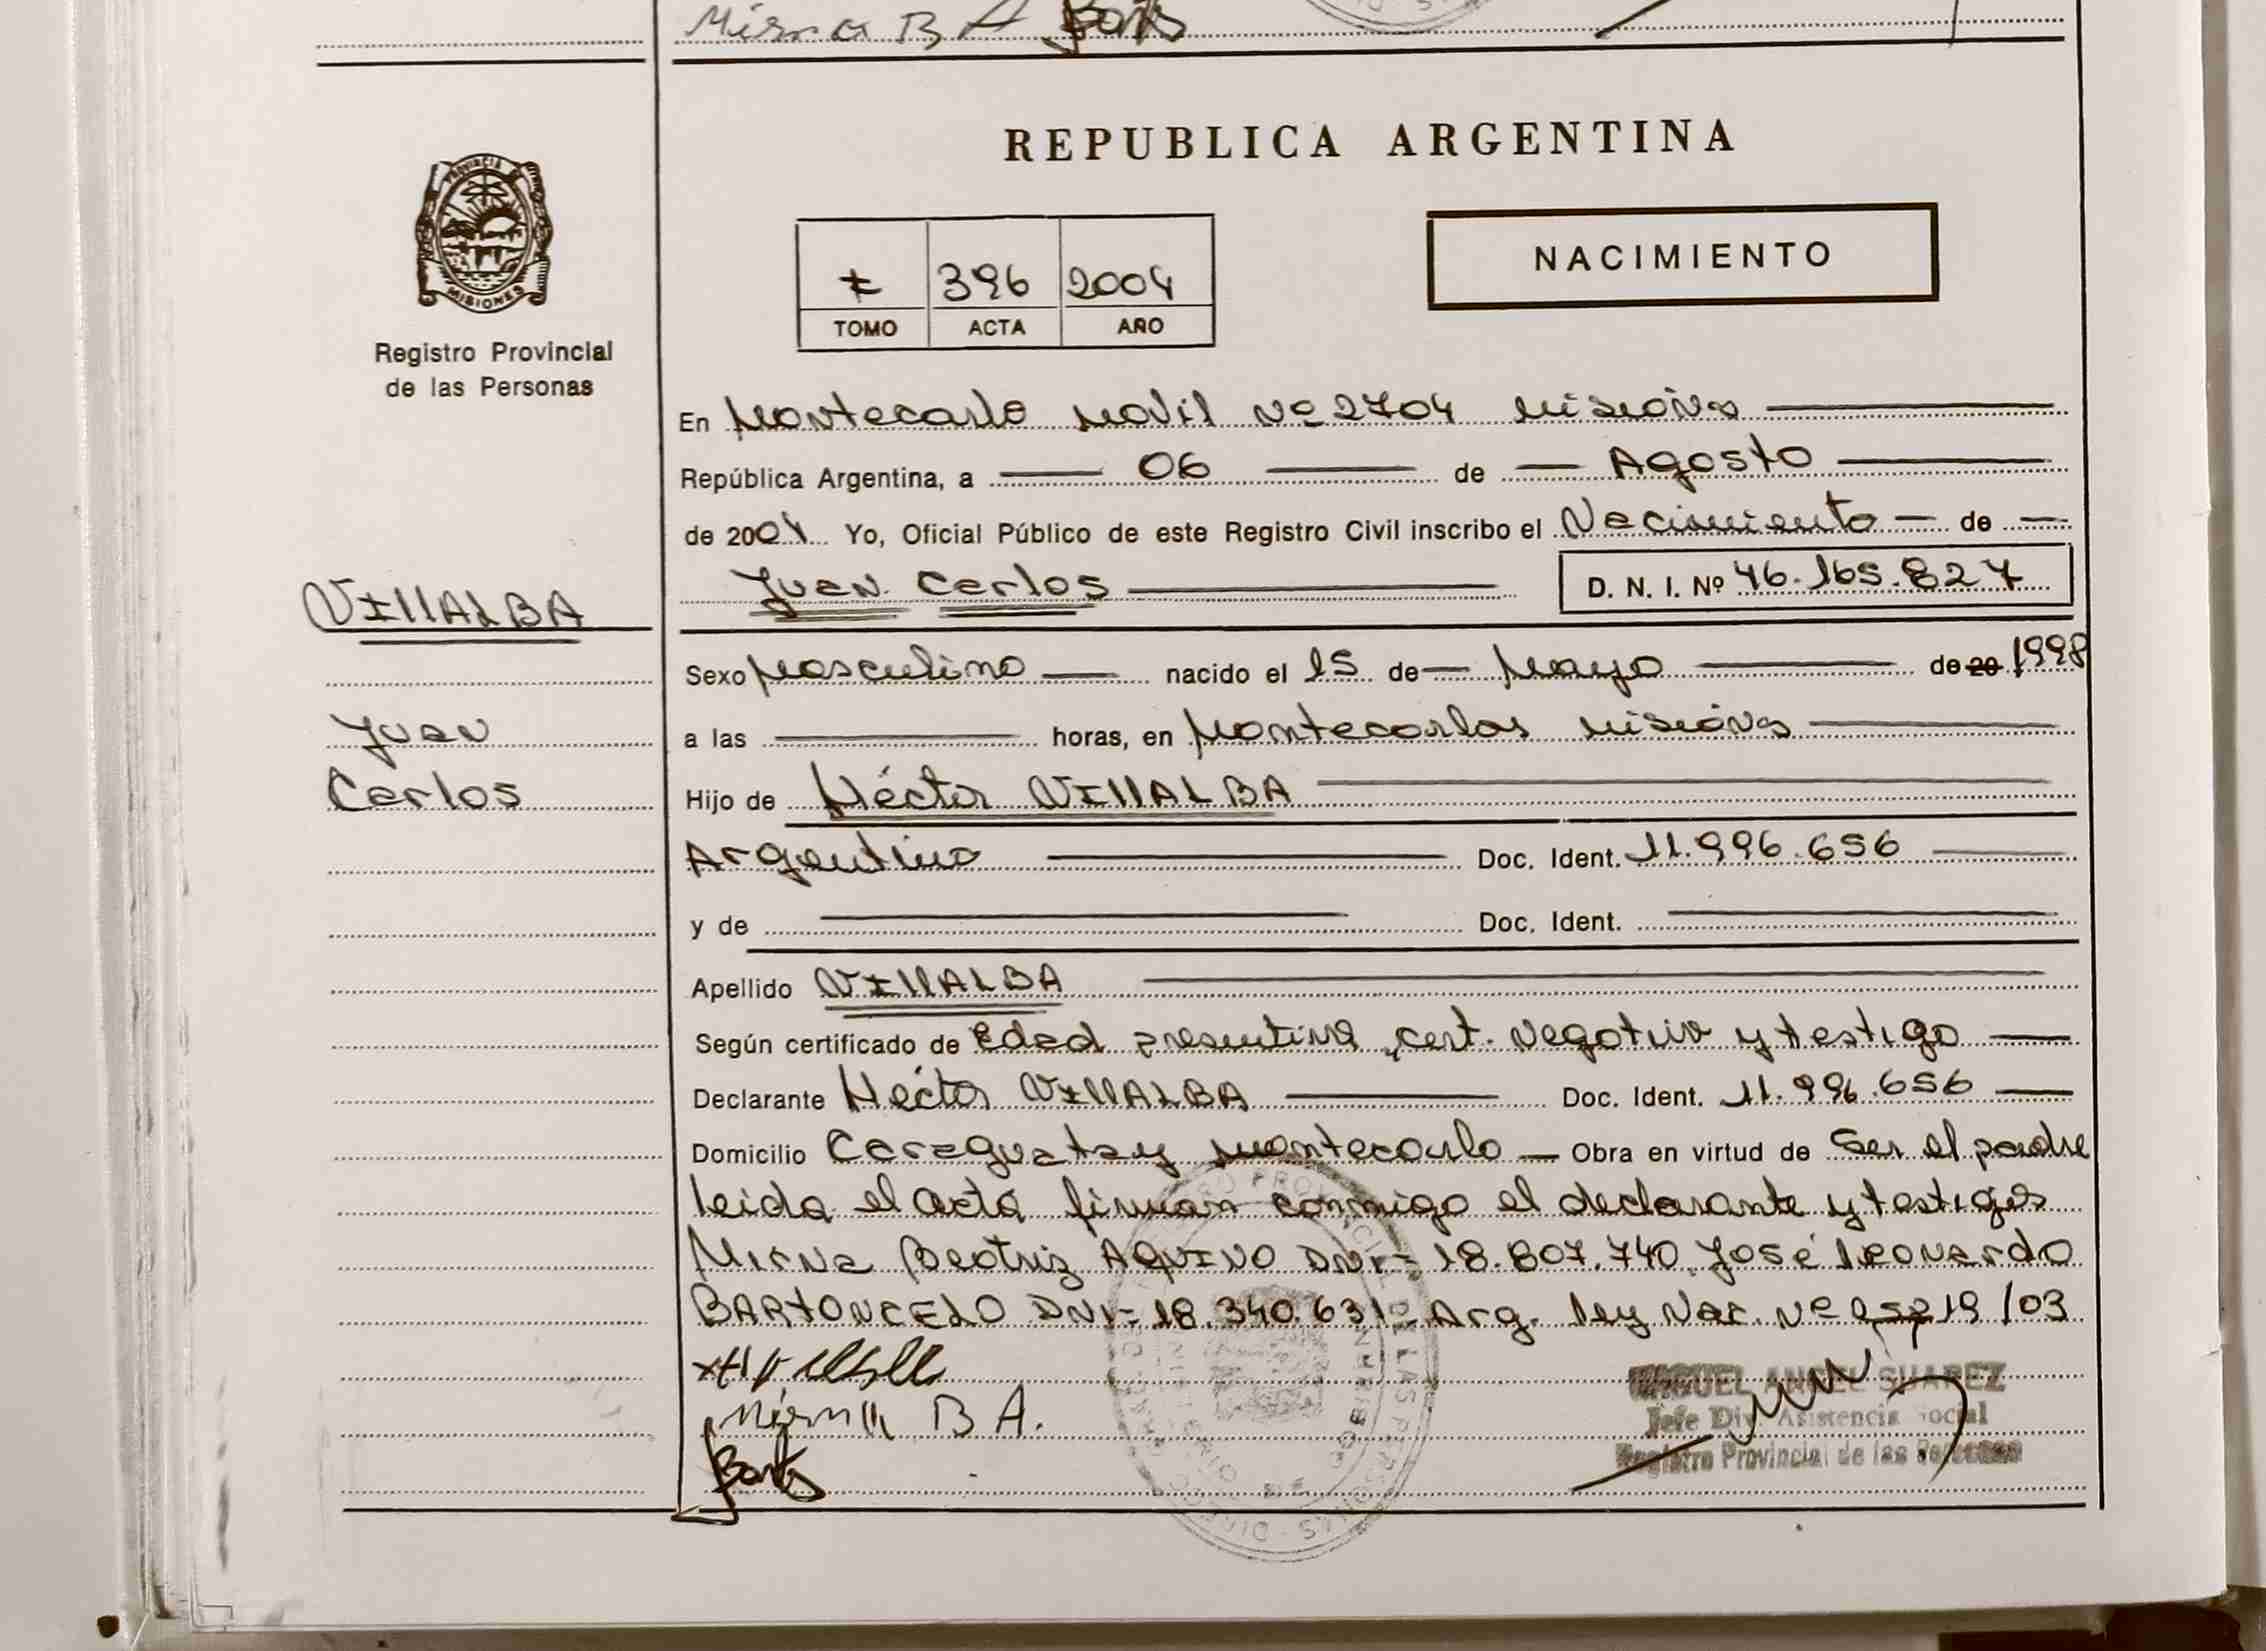 Mirna B A
REPUBLICA ARGENTINA
NACIMIENTO
PROVINCIA
MISIONES
Registro Provincial
de las Personas
396 2004
TOMO ACTA AÑO
En Montecarlo Movil Nº 2704 Misiones
República Argentina, a 06 de Agosto
de 2004 Yo, Oficial Público de este Registro Civil inscribo el Nacimiento de
Juan Carlos D. N. I. Nº 46.165.827
VILLALBA
Sexo Masculino nacido el 15 de Mayo de 20 1998
Juan
a las horas, en Montecarlos Misiones
Carlos
Hijo de Héctor VILLALBA
Argentino Doc. Ident. 11.996.656
y de Doc. Ident.
Apellido VILLALBA
Según certificado de Edad presuntiva, cert. Negativo y testigo
Declarante Hector VILLALBA Doc. Ident. 11.996.656
Domicilio Caraguatay Montecarlo Obra en virtud de Ser el padre
leida el acta firman conmigo el declarante y testigos
Mirna Beatriz AQUINO DNI- 18.807.740. José Leonardo
BARTONCELO DNI- 18.340.631- Arg. ley Nac. Nº 25819/03
Mirna B A.
MIGUEL ANGEL SUAREZ
Jefe Div. Asistencia Social
Registro Provincial de las Personas